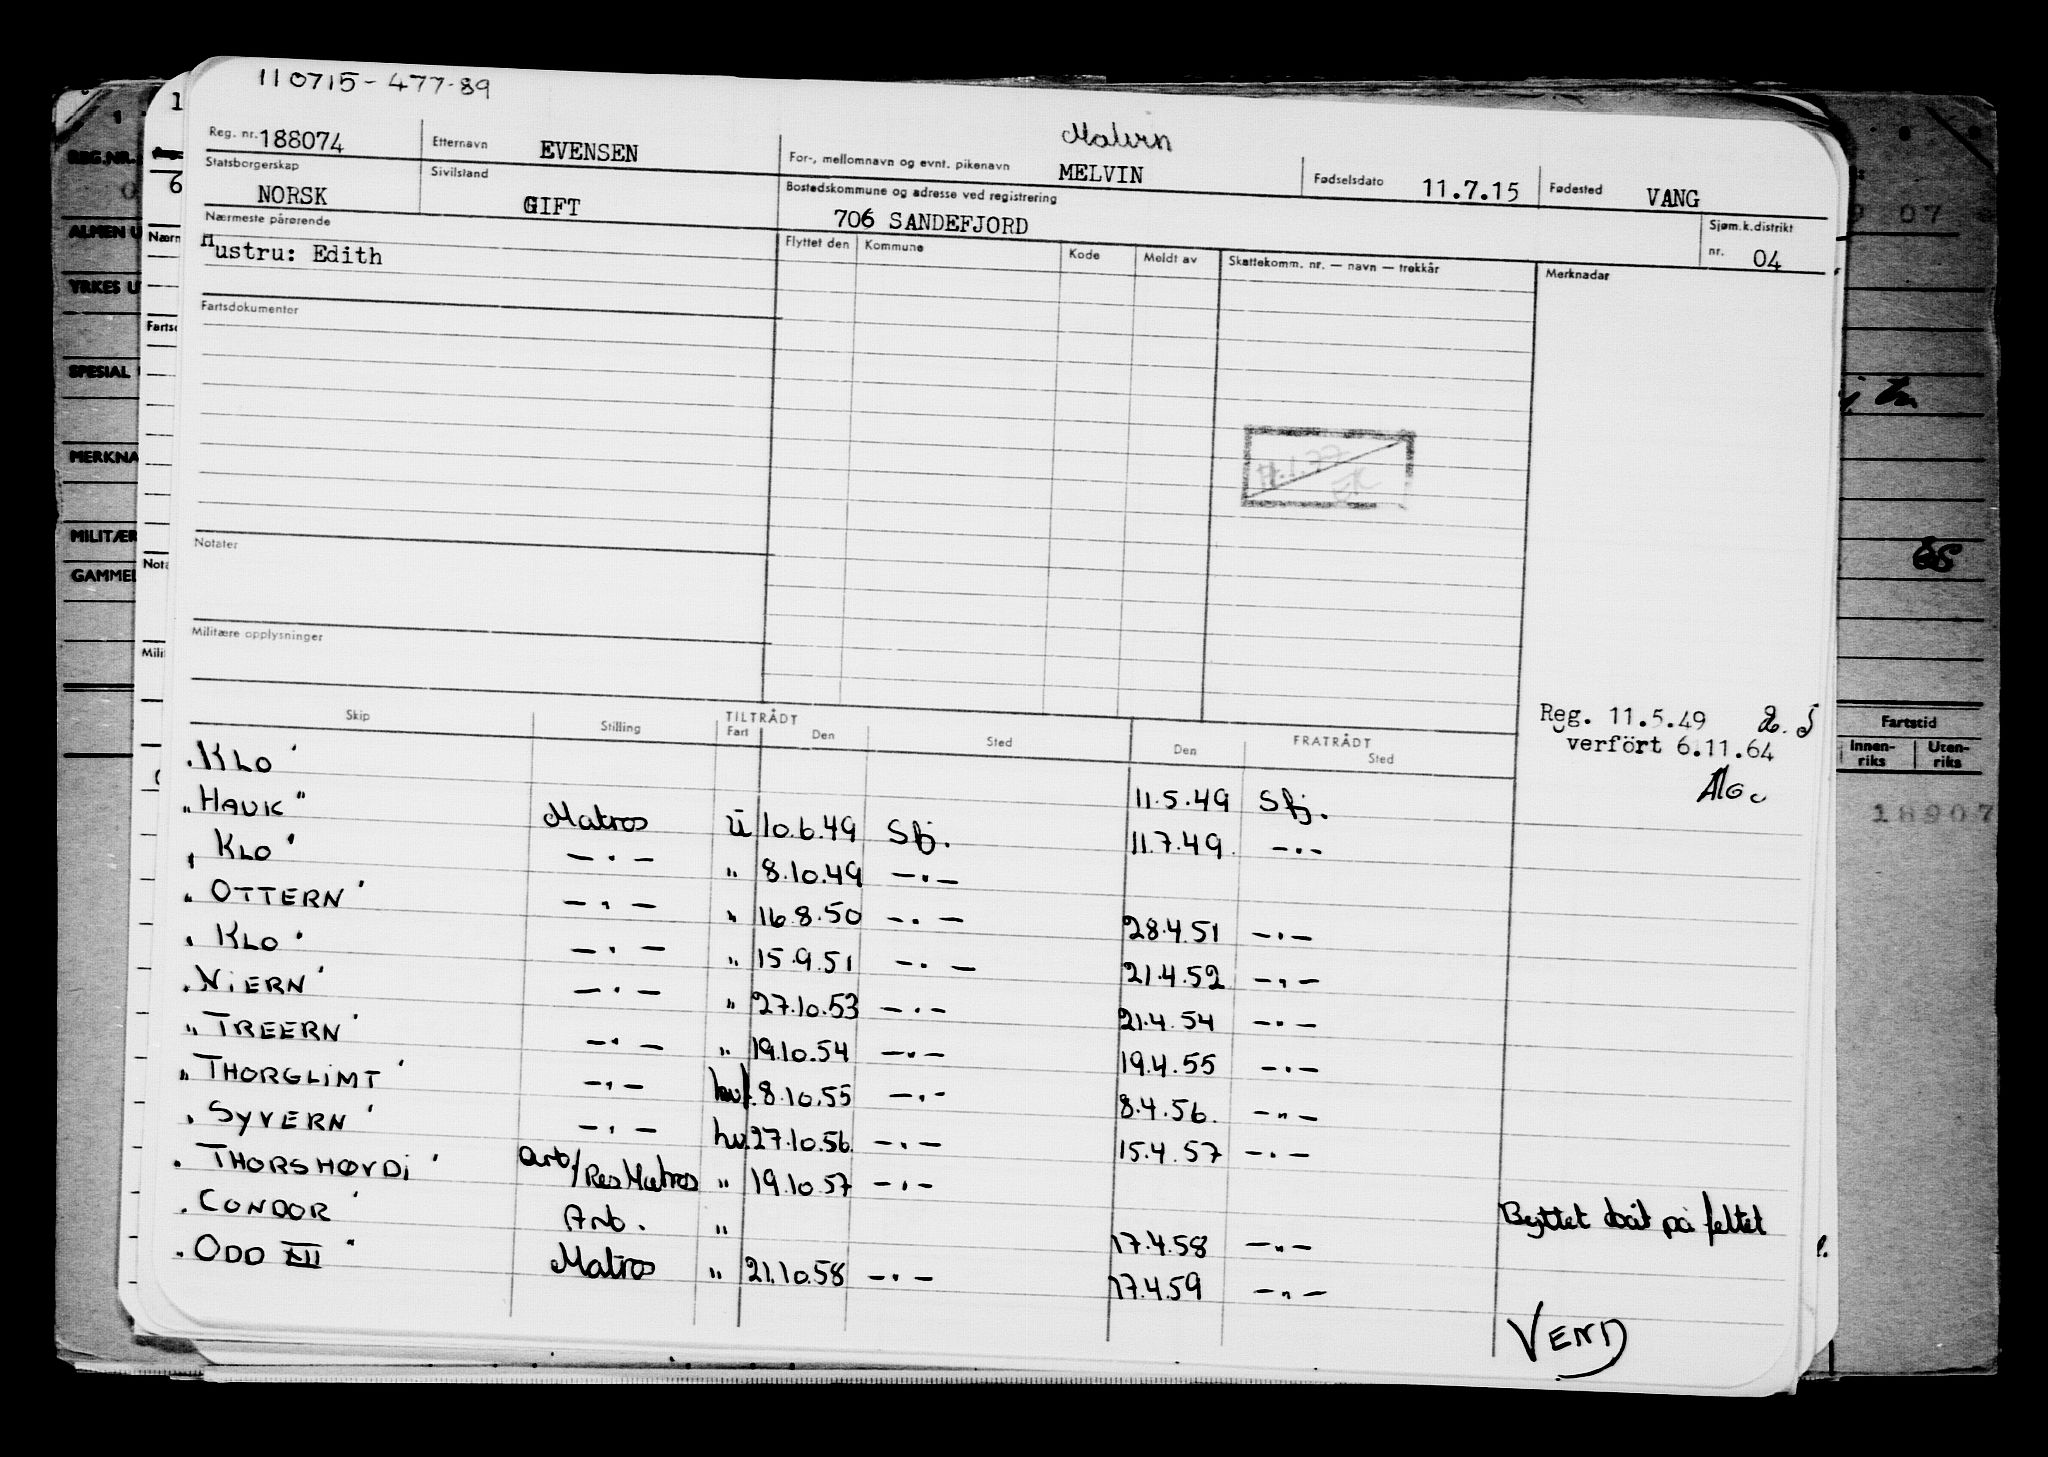 110715-477-89
Reg. nr. 188074 Etternavn EVENSEN For-, mellomnavn og evnt. pikenavn MELVIN Malvin Fødselsdato 11.7.15 Fødested VANG
Statsborgerskap NORSK Sivilstand GIFT Bostedskommune og adresse ved registrering 706 SANDEFJORD Sjøm.k.distrikt nr. 04
Nærmeste pårørende Flyttet den Kommune Kode Meldt av Skattekomm. nr. — navn — trekkår Merknader
Hustru: Edith
Fartsdokumenter
Notater
Militære opplysninger
Reg. 11.5.49
verfört 6.11.64
Skip Stilling TILTRÅDT Fart Den Sted FRATRÅDT Den Sted
"KLO" 11.5.49 Sfj.
"HAUK" Matros U 10.6.49 Sfj. 11.7.49 -"-
"KLO" -"- " 8.10.49 -"-
"OTTERN" -"- " 16.8.50 -"- 28.4.51 -"-
"KLO" -"- " 15.9.51 -"- 21.4.52 -"-
"NIERN" -"- " 27.10.53 -"- 21.4.54 -"-
"TREERN" -"- " 19.10.54 -"- 19.4.55 -"-
"THORGLIMT" -"- hvf. 8.10.55 -"- 8.4.56. -"-
"SYVERN" -"- hv. 27.10.56. -"- 15.4.57 -"-
"THORSHØVDI" Arb/Res Matros " 19.10.57 -"-
"CONDOR" Arb. " 17.4.58 -"- Byttet båt på feltet
"ODD XII" Matros " 21.10.58 -"- 17.4.59 -"-
VEND
REG.NR.
ALMEN U
YRKES U
SPESIAL
MERKNA
MILITÆR
GAMMEL
Nærm
Fartsd
Nota
Mili
Fartstid
Innen-riks Uten-riks
18907